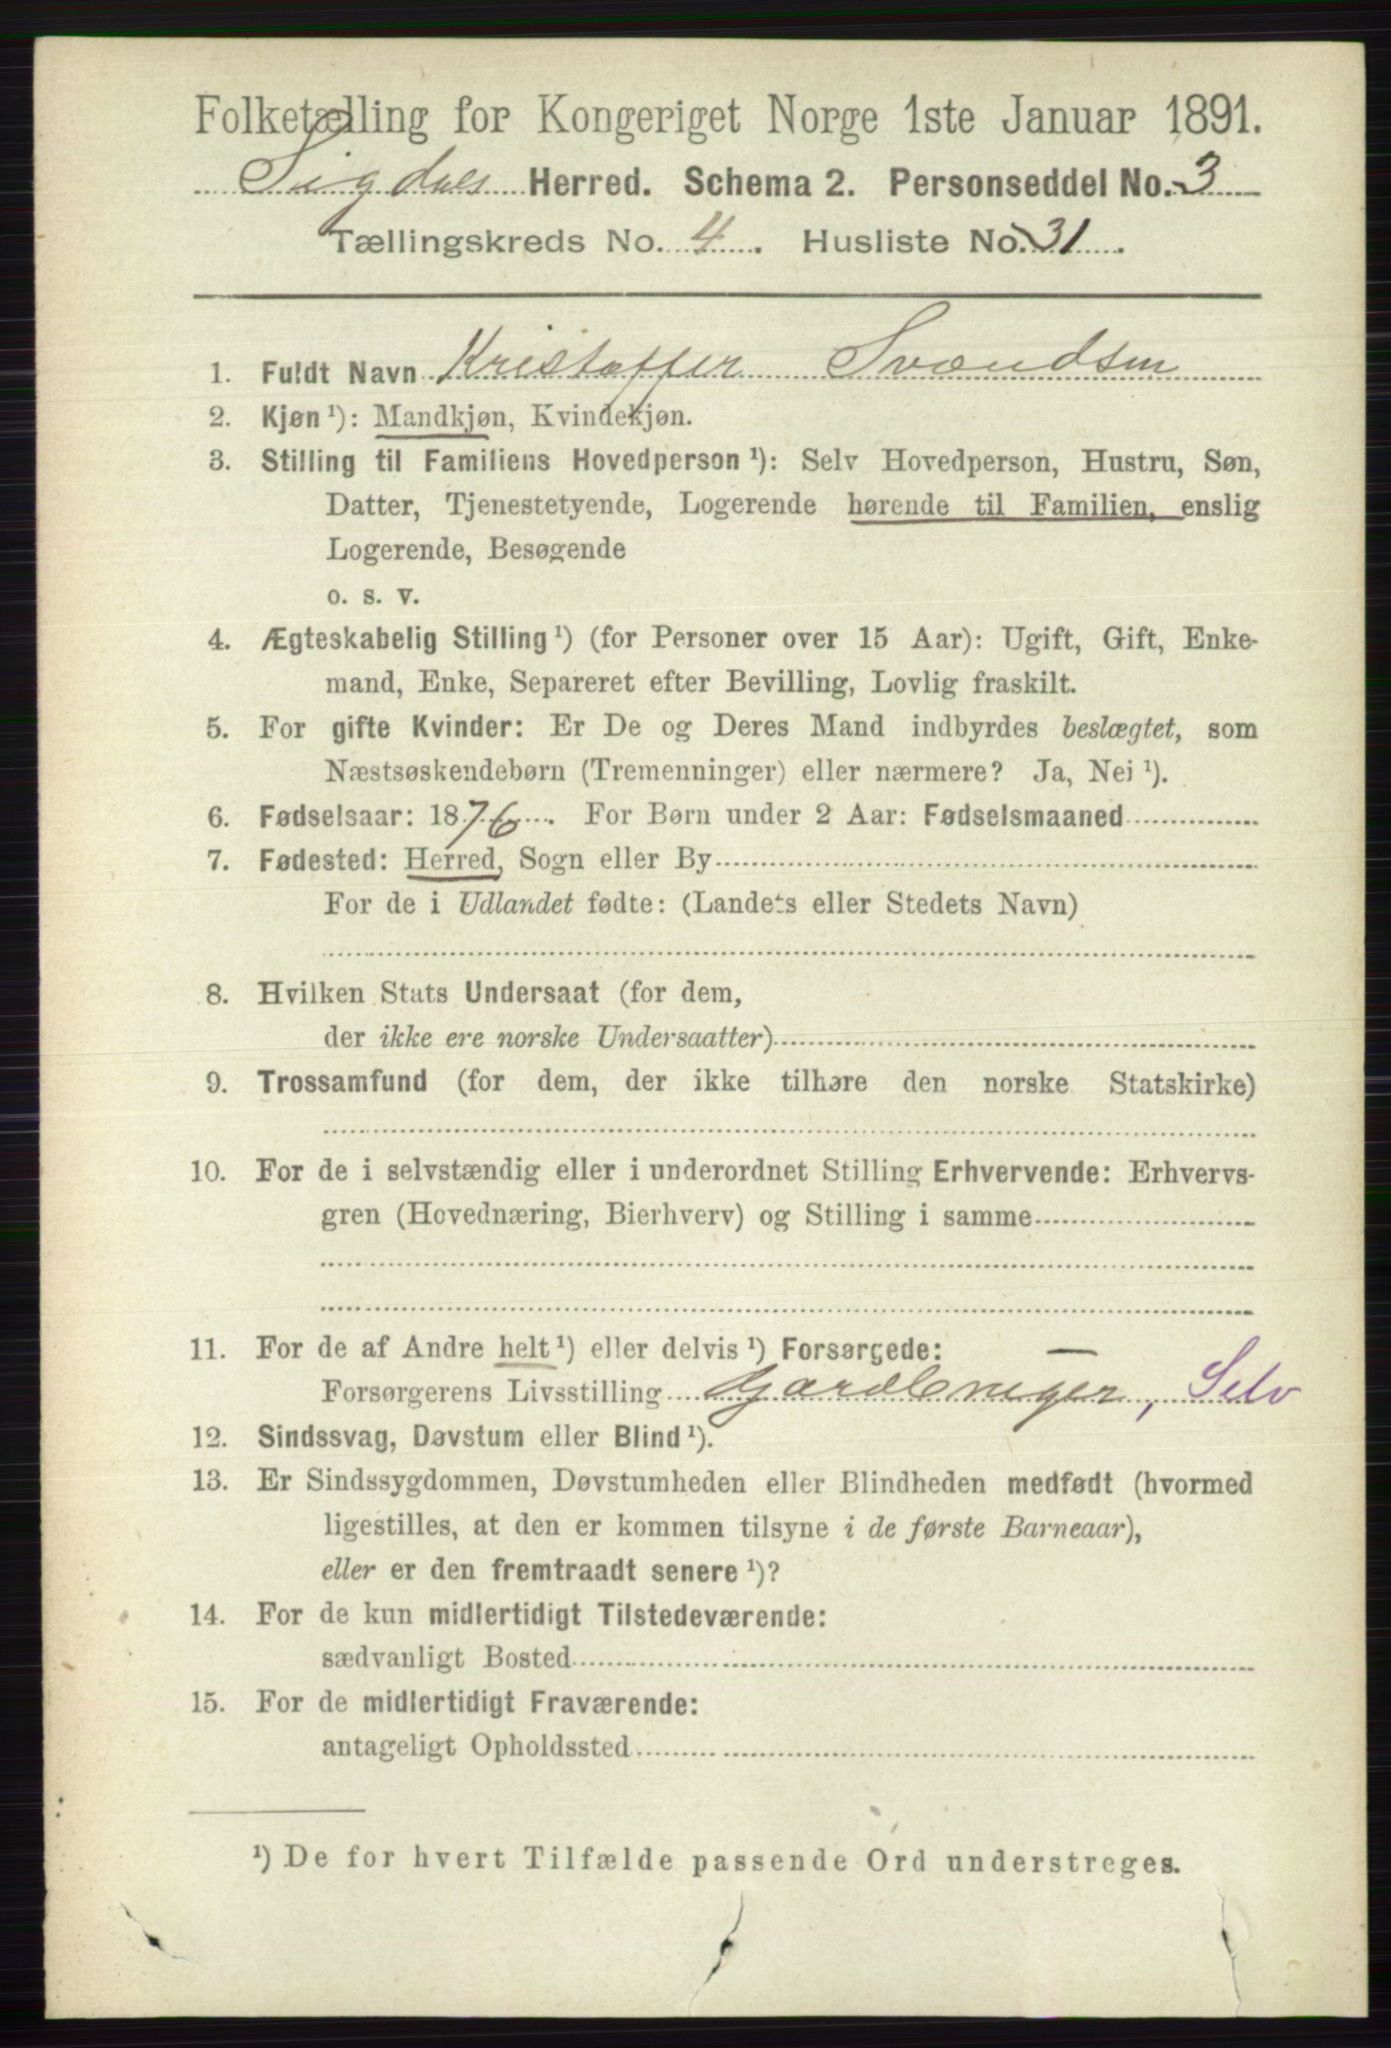 Folketælling for Kongeriget Norge 1ste Januar 1891.
Sigdals Herred. Schema 2. Personseddel No. 3
Tællingskreds No. 4. Husliste No. 31.
1. Fuldt Navn Kristoffer Svændsen
2. Kjøn ¹): Mandkjøn, Kvindekjøn.
3. Stilling til Familiens Hovedperson ¹): Selv Hovedperson, Hustru, Søn,
Datter, Tjenestetyende, Logerende hørende til Familien, enslig
Logerende, Besøgende
o. s. v.
4. Ægteskabelig Stilling ¹) (for Personer over 15 Aar): Ugift, Gift, Enke-
mand, Enke, Separeret efter Bevilling, Lovlig fraskilt.
5. For gifte Kvinder: Er De og Deres Mand indbyrdes beslægtet, som
Næstsøskendebørn (Tremenninger) eller nærmere? Ja, Nei ¹).
6. Fødselsaar: 1876. For Børn under 2 Aar: Fødselsmaaned
7. Fødested: Herred, Sogn eller By
For de i Udlandet fødte: (Landets eller Stedets Navn)
8. Hvilken Stats Undersaat (for dem,
der ikke ere norske Undersaatter)
9. Trossamfund (for dem, der ikke tilhøre den norske Statskirke)
10. For de i selvstændig eller i underordnet Stilling Erhvervende: Erhvervs-
gren (Hovednæring, Bierhverv) og Stilling i samme
11. For de af Andre helt ¹) eller delvis ¹) Forsørgede: —
Forsørgerens Livsstilling Gardbruger, Selv
12. Sindssvag, Døvstum eller Blind ¹).
13. Er Sindssygdommen, Døvstumheden eller Blindheden medfødt (hvormed
ligestilles, at den er kommen tilsyne i de første Barneaar),
eller er den fremtraadt senere ¹)?
14. For de kun midlertidigt Tilstedeværende:
sædvanligt Bosted
15. For de midlertidigt Fraværende:
antageligt Opholdssted
¹) De for hvert Tilfælde passende Ord understreges.